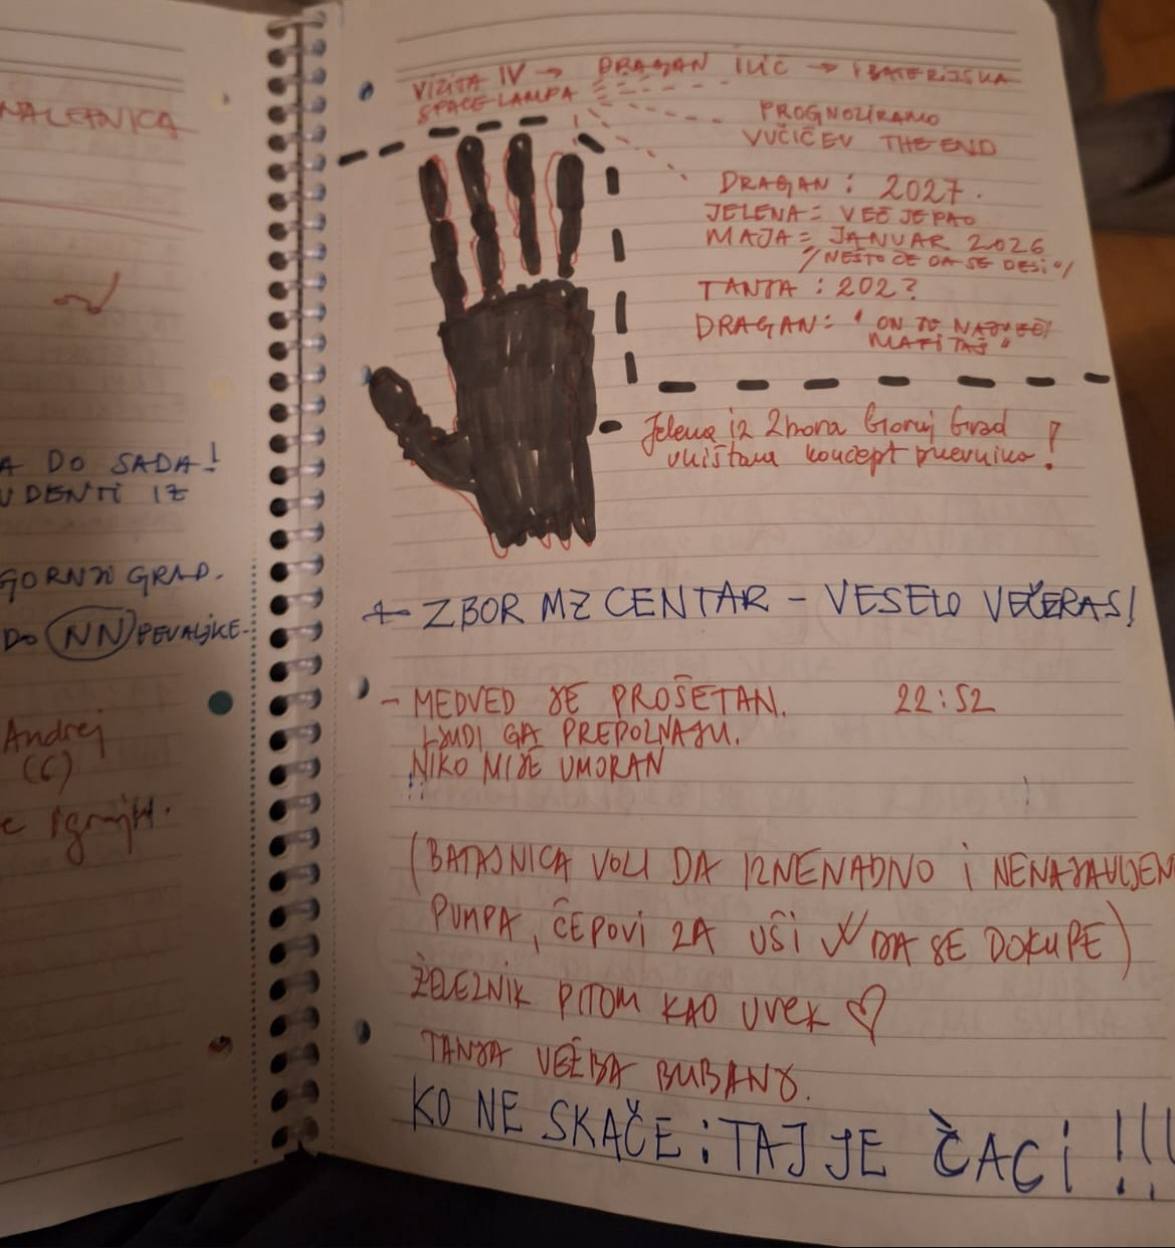 NALEPNICA
A DO SADA!
UDENTI IZ
GORNJI GRAD.
DO NN PEVALJKE.
Andrej
(6)
VIZITA IV → DRAGAN ILIĆ → 1 BATERIJSKA
SPACE LAMPA
PROGNOZIRAMO
VUČIĆEV THE END
DRAGAN: 2027.
JELENA = VEĆ JE PAO
MAJA = JANUAR 2026
"NEŠTO ĆE DA SE DESI"
TANJA : 202?
DRAGAN: "ON JE NAJVEĆI
Jelena iz Zbora Gornji Grad
uništava koncept dnevnika!
← ZBOR MZ CENTAR - VESELO VEČERAS!
- MEDVED JE PROŠETAN. 22:52
LJUDI GA PREPOZNAJU.
NIKO NIJE UMORAN
!!
(BATAJNICA VOLI DA IZNENADNO I NENAJAVLJEN
PUMPA, ČEPOVI ZA UŠI DA SE DOKUPE)
ŽELEZNIK PITOM KAO UVEK ♡
TANJA VEŽBA BUBANJ.
KO NE SKAČE : TAJ JE ĆACI !!!